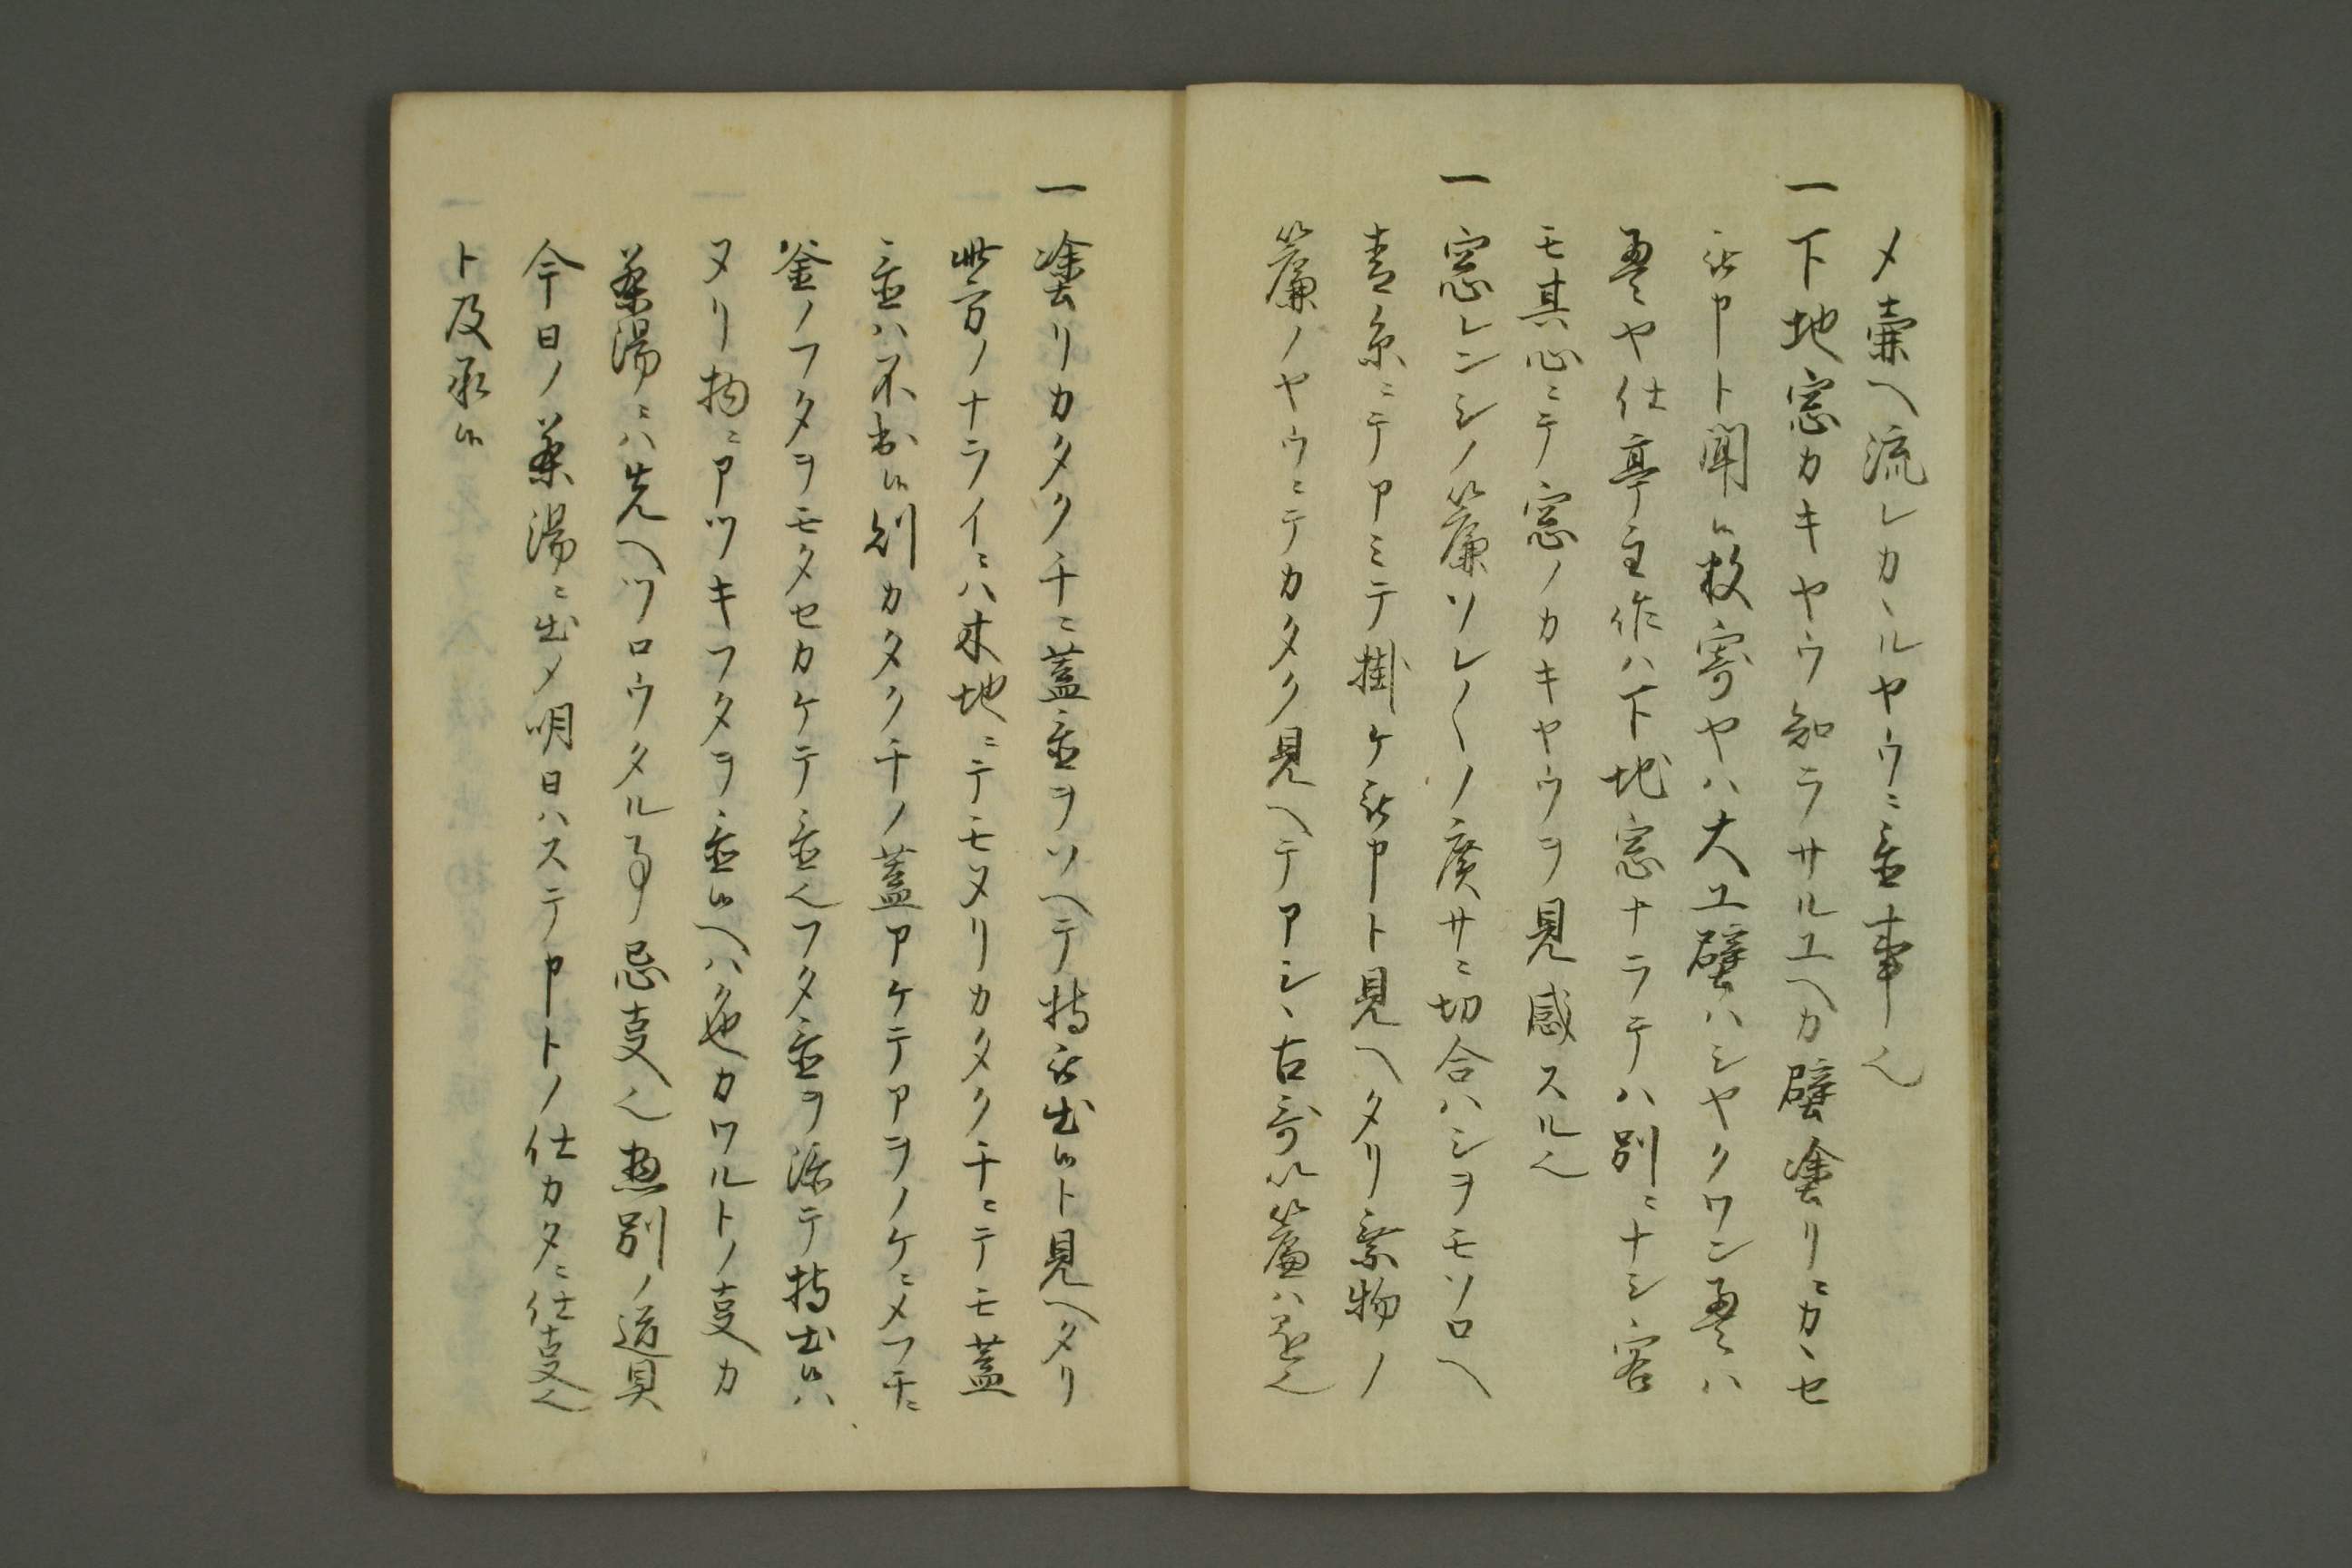 メ橐ヘ流レカヽルヤウニ置事也
一下地窓カキヤウ知ラサルユヘカ壁塗リニカヽセ
被申ト聞候数寄ヤハ大工壁ハシヤクワン畳ハ
畳ヤ仕亭主作ハ下地窓ナラテハ別ニナシ客
モ其心ニテ窓ノカキヤウヲ見感スル也
一窓レンシノ簾ソレ〱ノ廣サニ切合ハシヲモソロヘ
青糸ニテアミテ掛ケ被申ト見ヘタリ繋物ノ
簾ノヤウニテカタク見ヘテアシヽ古哥ハ簾ハ
一塗リカタクチニ蓋置ヲソヘテ持被出候ト見ヘタリ
此方ノナライニハ木地ニテモヌリカタクチニテモ蓋
置ハ不出候別カタクチノ蓋アケテアヲノケニメフチニ
釜ノフタヲモタセカケテ置也フタ置ヲ添テ持出候ハ
ヌリ物ニアツキフタヲ置候ヘハ色カワルトノ叓カ
茶湯ニハ先ヘツロウタル事忌叓也惣別ノ道具
今日ノ茶湯ニ出メ明日ハステ申トノ仕カタニ仕叓也
ト及承候